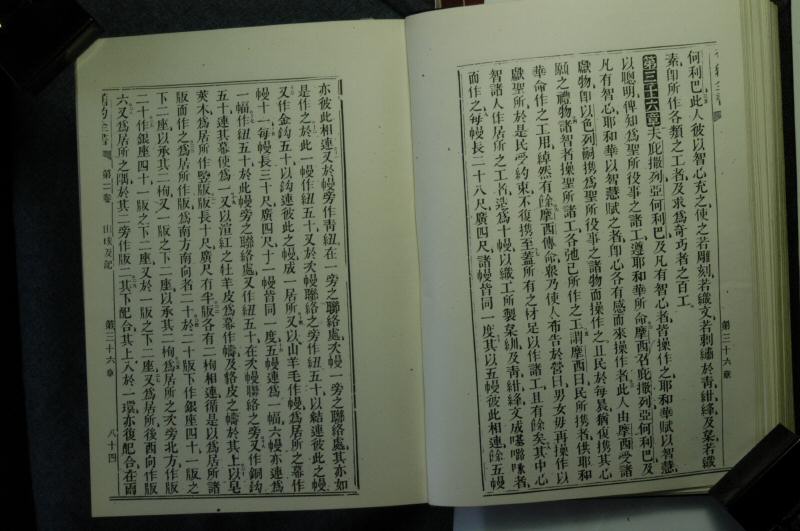 何利巴此人彼以智心充之使之若雕刻若織文若刺繡於青紺絳及枲若織
素卽所作各類之工者及求爲奇巧者之百工
第三十六章夫庇撒列亞何利巴及凡有智心者皆操作之耶和華賦以智慧
以聰明俾知爲聖所役事之諸工遵耶和華所命摩西召庇撒列亞何利巴及
凡有智心耶和華以智慧賦之者卽心各有感而來操作者此人由摩西受諸
獻物卽以色列嗣携爲聖所役事之諸物而操作之且民於每晨猶復携其心
願之禮物諸智者操聖所諸工各弛已所作之工謂摩西曰民所携者供耶和
華命作之工用綽然有餘摩西傳命衆乃使人布告於營曰男女毋再操作以
獻聖所於是民受約束不復携至蓋所有之材足以作諸工且有餘矣其中心
智諸人作居所之工者造爲十幔以織工所製枲綫及青紺絳文成𠼻𡀔咏者
而作之每幔長二十八尺廣四尺諸幔皆同一度其以五幔彼此相連餘五幔
第三十六章
亦彼此相連又於幔旁作青紐在一旁之聯絡處次幔一旁之聯絡處其亦如
是作之於此一幔作紐五十又於次幔聯絡之旁作紐五十以結連彼此之幔
又作金鈎五十以鈎連彼此之幔成一居所又以山羊毛作幔爲居所之幕作
幔十一每幔長三十尺廣四尺十一幔皆同一度五幔連爲一幅六幔亦連爲
一幅作紐五十於此幔旁之聯絡處又作紐五十在次幔聯絡之旁又作銅鈎
五十連其幕使爲一又以渲紅之牡羊皮爲幕作幬及貉皮之幬於其上以皂
莢木爲居所作竪版版長十尺廣尺有半版各有二枸相連循是以爲居所諸
版而作之爲居所作版爲南方南向者二十於二十版下作銀座四十一版之
下二座以承其二枸又一版之下二座以承其二枸爲居所之次旁北方作版
二十作銀座四十一版之下二座又於一版之下二座又爲居所後西向作版
六又爲居所之隅於其二旁作版二其下配合其上入於一環亦復配合在兩
第二卷
第三十六章
八十四